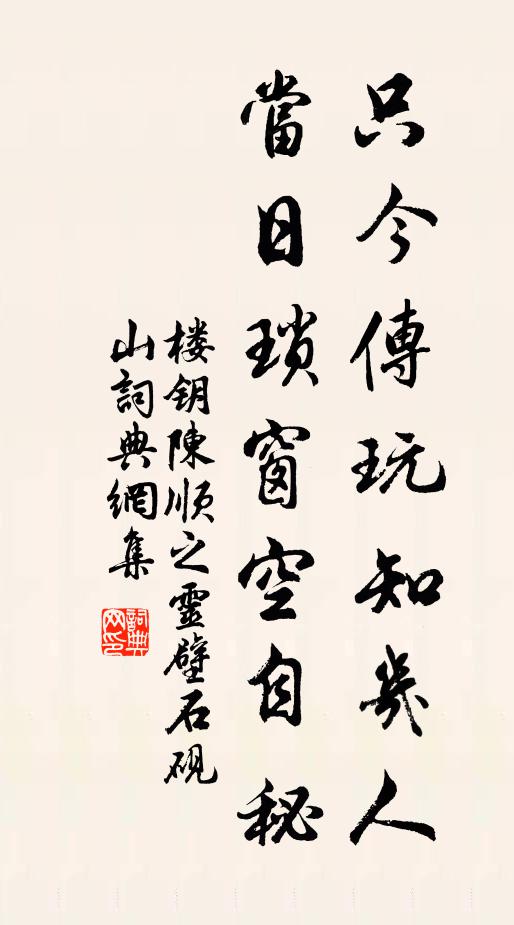 只今傳玩知幾人
當日瑣窗空自秘
楼鈅陳順之靈壁石硯
山詞典網集
詞典網印